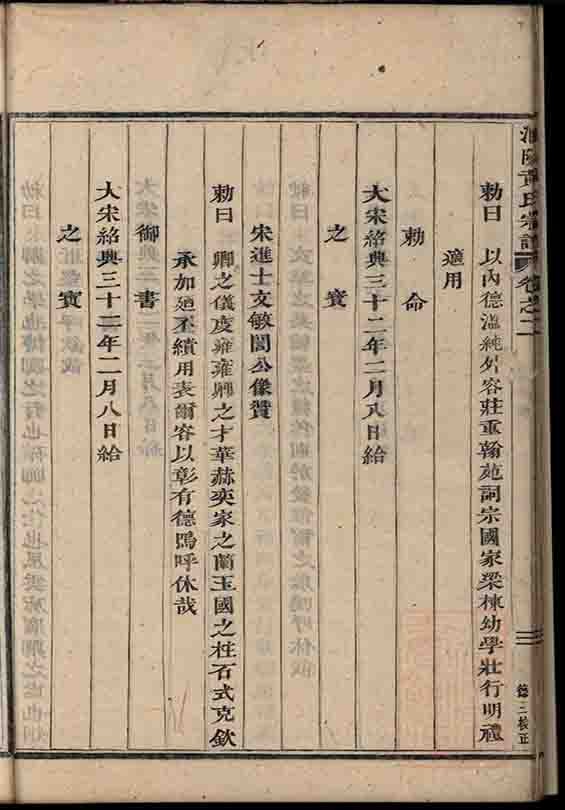 敕曰 以內德溫純外容莊重翰苑詞宗國家梁棟幼學壯行明禮
適用
敕 命
大宋紹興三十二年二月八日給
之 寳
宋進士文敏閭公像贊
敕曰 卿之儀度雍雍卿之才華赫奕家之蘭玉國之柱石式克欽
承加廼丕績用表爾容以彰有德嗚呼休哉
御 書
大宋紹興三十二年二月八日給
之 寳
黃氏宗譜 卷之二
三
德三校正